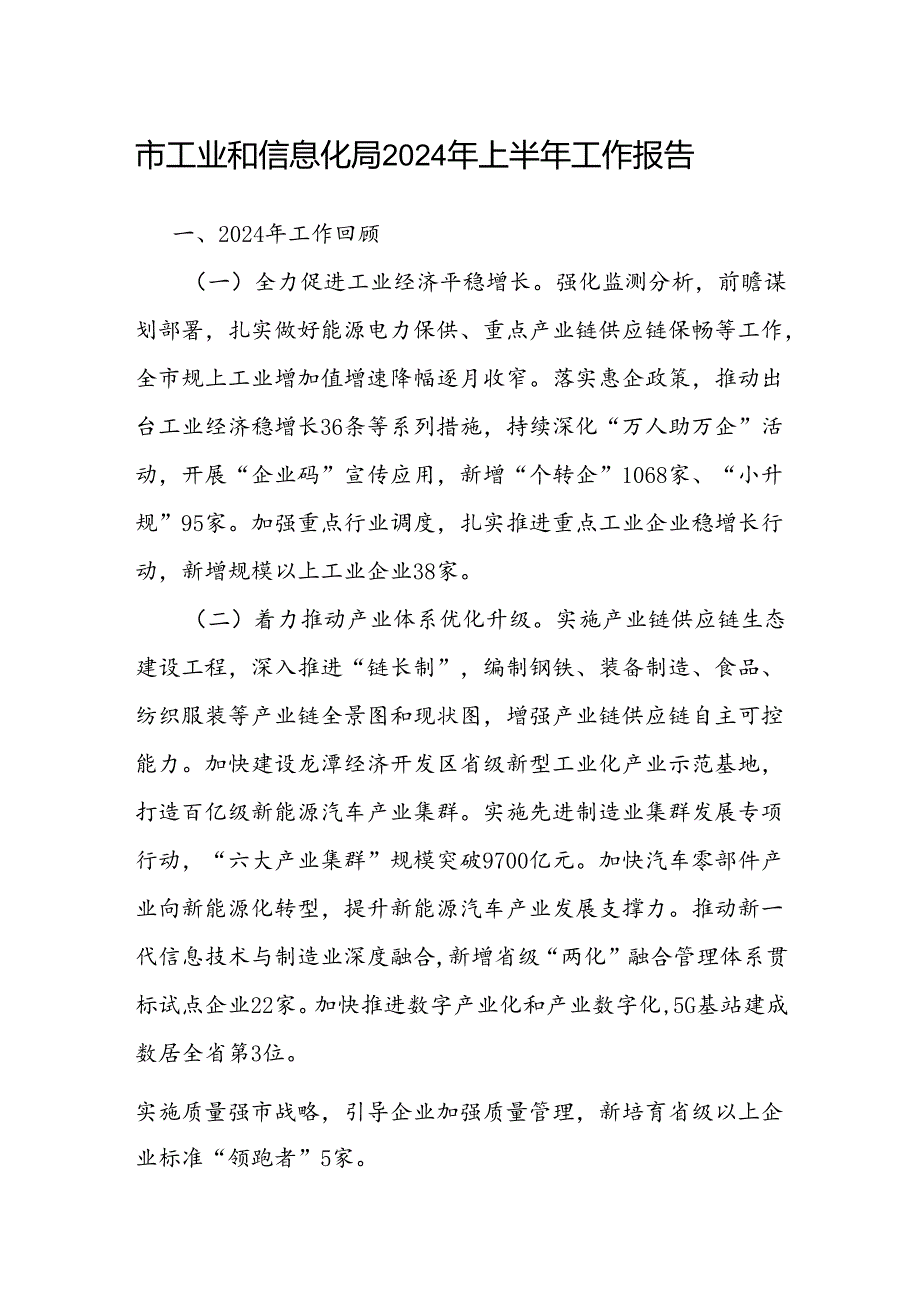 市工业和信息化局2024年上半年工作报告
一、2024年工作回顾
（一）全力促进工业经济平稳增长。强化监测分析，前瞻谋
划部署，扎实做好能源电力保供、重点产业链供应链保畅等工作，
全市规上工业增加值增速降幅逐月收窄。落实惠企政策，推动出
台工业经济稳增长36条等系列措施，持续深化“万人助万企”活
动，开展“企业码”宣传应用，新增“个转企”1068家、“小升
规”95家。加强重点行业调度，扎实推进重点工业企业稳增长行
动，新增规模以上工业企业38家。
（二）着力推动产业体系优化升级。实施产业链供应链生态
建设工程，深入推进“链长制”，编制钢铁、装备制造、食品、
纺织服装等产业链全景图和现状图，增强产业链供应链自主可控
能力。加快建设龙潭经济开发区省级新型工业化产业示范基地，
打造百亿级新能源汽车产业集群。实施先进制造业集群发展专项
行动，“六大产业集群”规模突破9700亿元。加快汽车零部件产
业向新能源化转型，提升新能源汽车产业发展支撑力。推动新一
代信息技术与制造业深度融合,新增省级“两化”融合管理体系贯
标试点企业22家。加快推进数字产业化和产业数字化,5G基站建成
数居全省第3位。
实施质量强市战略，引导企业加强质量管理，新培育省级以上企
业标准“领跑者”5家。